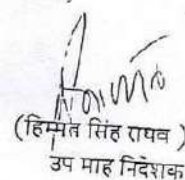 (हिम्मत सिंह राघव )
उप माह निदेशक